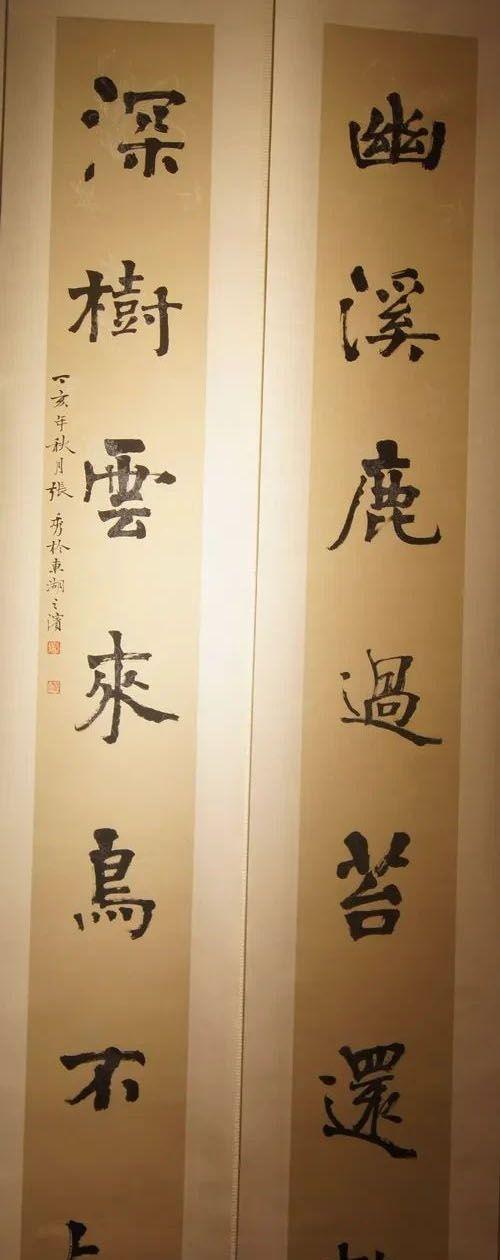 幽溪鹿過苔還
深樹雲來鳥不
丁亥年秋月張秀於東湖之濱